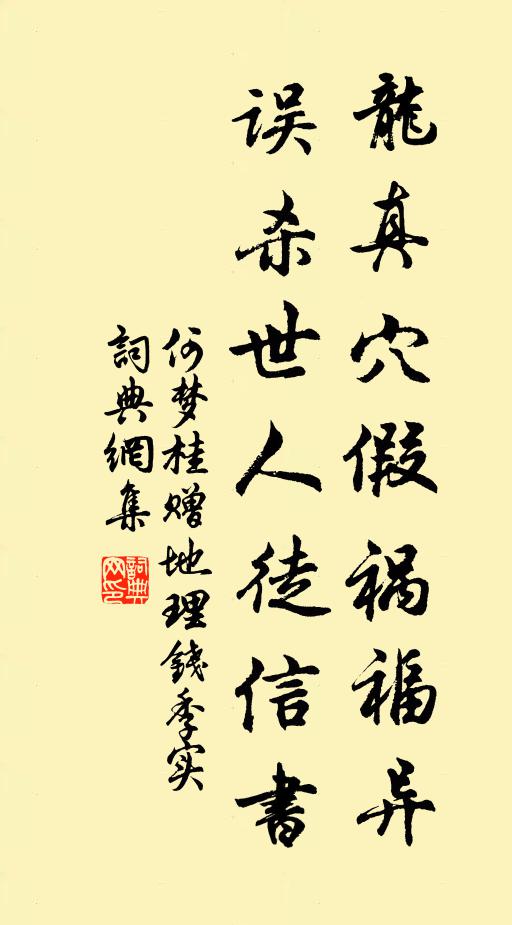 龍真穴假祸福异
误杀世人徒信書
何梦桂赠地理錢季实
詞典網集
詞典网印